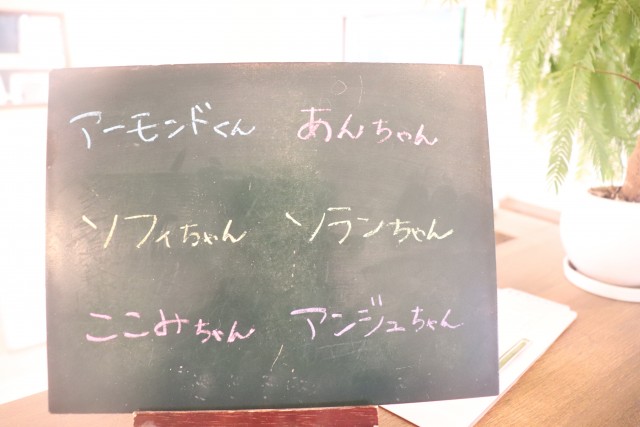 アーモンドくん あんちゃん
ソフィちゃん ソランちゃん
ここみちゃん アンジュちゃん